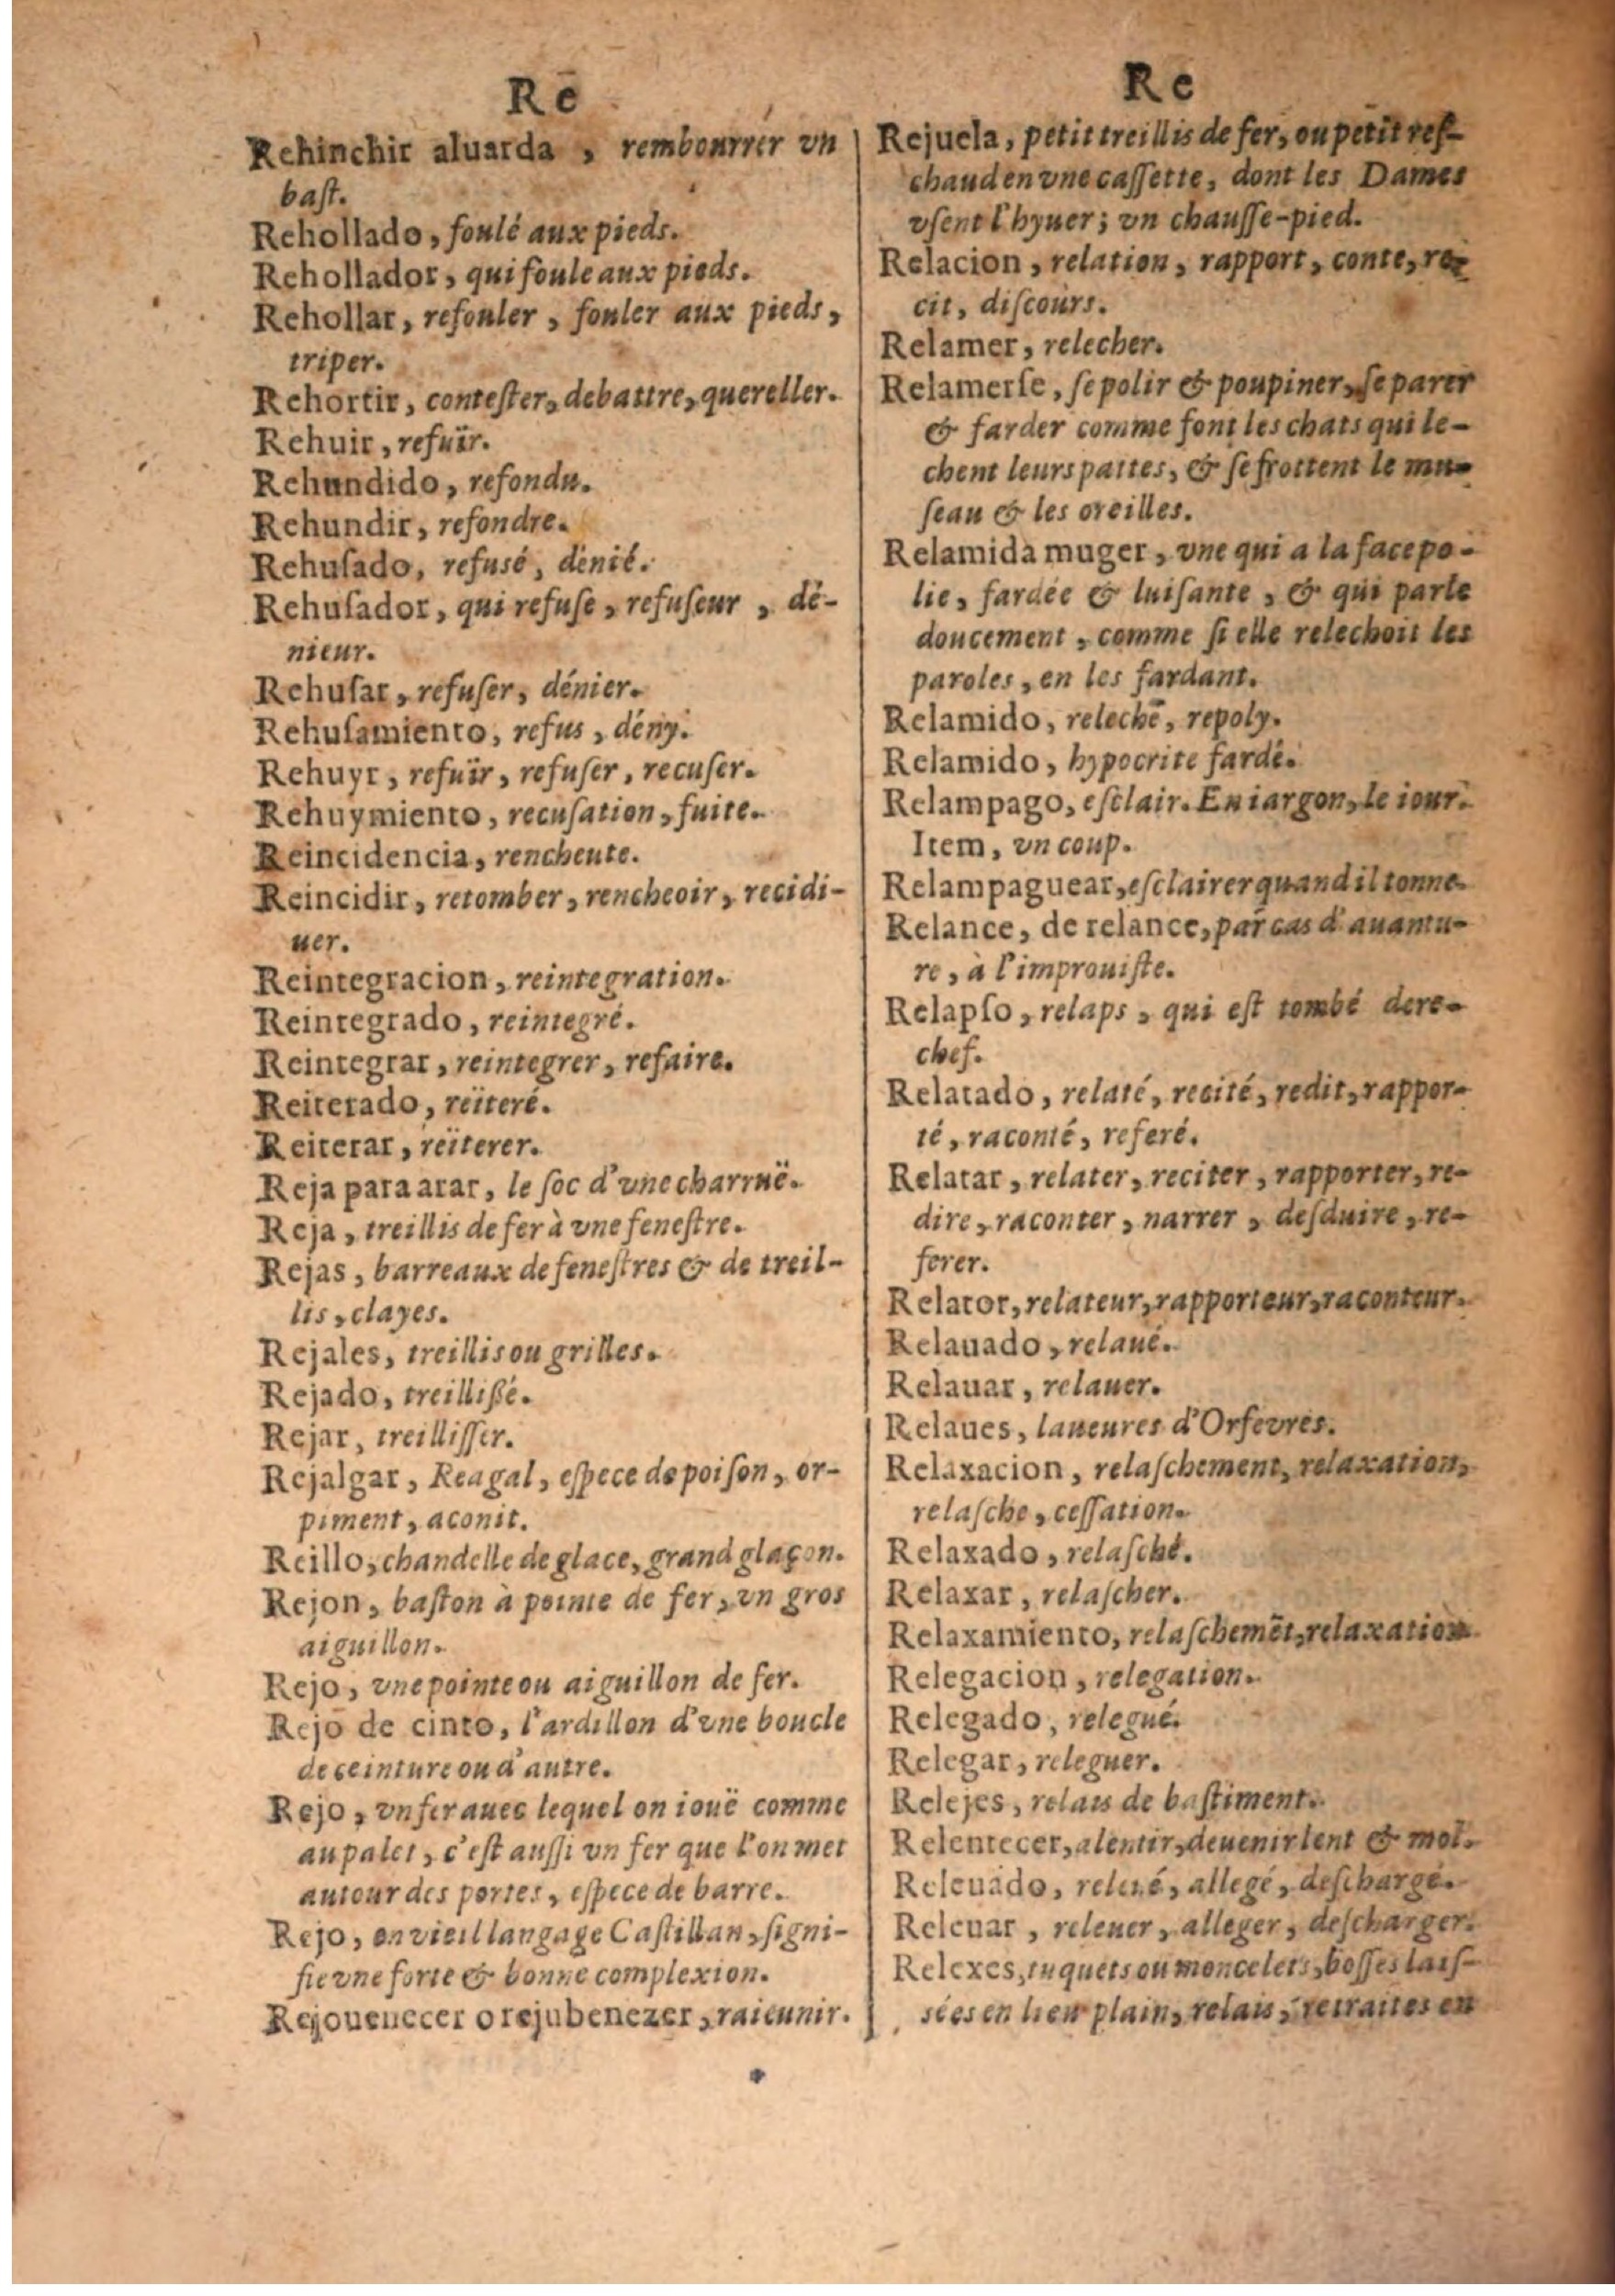 Re
Rehinchir aluarda, rembourrer vn
baſt.
Rehollado, foulé aux pieds.
Rehollador, qui foule aux pieds.
Rehollar, refouler, fouler aux pieds,
triper.
Rehortir, conteſter, debattre, quereller.
Rehuir, refuïr.
Rehundido, refondu.
Rehundir, refondre.
Rehuſado, refusé, dénié.
Rehuſador, qui refuſe, refuſeur, dé-
nieur.
Rehuſar, refuſer, dénier.
Rehuſamiento, refus, dény.
Rehuyr, refuïr, refuſer, recuſer.
Rehuymiento, recuſation, fuite.
Reincidencia, rencheute.
Reincidir, retomber, rencheoir, recidi-
uer.
Reintegracion, reintegration.
Reintegrado, reintegré.
Reintegrar, reintegrer, refaire.
Reiterado, reïteré.
Reiterar, reïterer.
Reja para arar, le ſoc d'vne charruë.
Reja, treillis de fer à vne feneſtre.
Rejas, barreaux de feneſtres & de treil-
lis, clayes.
Rejales, treillis ou grilles.
Rejado, treillißé.
Rejar, treilliſſer.
Rejalgar, Reagal, eſpece de poiſon, or-
piment, aconit.
Reillo, chandelle de glace, grand glaçon.
Rejon, baſton à pointe de fer, vn gros
aiguillon.
Rejo, vne pointe ou aiguillon de fer.
Rejo de cinto, l'ardillon d'vne boucle
de ceinture ou d'autre.
Rejo, vn fer auec lequel on iouë comme
au palet, c'eſt auſſi vn fer que l'on met
autour des portes, eſpece de barre.
Rejo, en vieil langage Caſtillan, ſigni-
fie vne forte & bonne complexion.
Rejouenecer o rejubenezer, raieunir.
Re
Rejuela, petit treillis de fer, ou petit reſ-
chaud en vne caſſette, dont les Dames
vſent l'hyuer; vn chauſſe-pied.
Relacion, relation, rapport, conte, re-
cit, diſcours.
Relamer, relecher.
Relamerſe, ſe polir & poupiner, ſe parer
& farder comme font les chats qui le-
chent leurs pattes, & ſe frottent le mu-
ſeau & les oreilles.
Relamida muger, vne qui a la face po-
lie, fardée & luiſante, & qui parle
doucement, comme ſi elle relechoit les
paroles, en les fardant.
Relamido, releché, repoly.
Relamido, hypocrite fardé.
Relampago, eſclair. En iargon, le iour.
Item, vn coup.
Relampaguear, eſclairer quand il tonne.
Relance, de relance, par cas d'auantu-
re, à l'improuiſte.
Relapſo, relaps, qui eſt tombé dere-
chef.
Relatado, relaté, recité, redit, rappor-
té, raconté, referé.
Relatar, relater, reciter, rapporter, re-
dire, raconter, narrer, deſduire, re-
ferer.
Relator, relateur, rapporteur, raconteur.
Relauado, relaué.
Relauar, relauer.
Relaues, laueures d'Orfevres.
Relaxacion, relaſchement, relaxation,
relaſche, ceſſation.
Relaxado, relaſché.
Relaxar, relaſcher.
Relaxamiento, relaſchemẽt, relaxation
Relegacion, relegation.
Relegado, relegué.
Relegar, releguer.
Relejes, relais de baſtiment.
Relentecer, alentir, deuenir lent & mol.
Releuado, releué, allegé, deſchargé.
Releuar, releuer, alleger, deſcharger.
Relexes, tuquets ou moncelets, boſſes laiſ-
sées en lieu plain, relais, retraites en